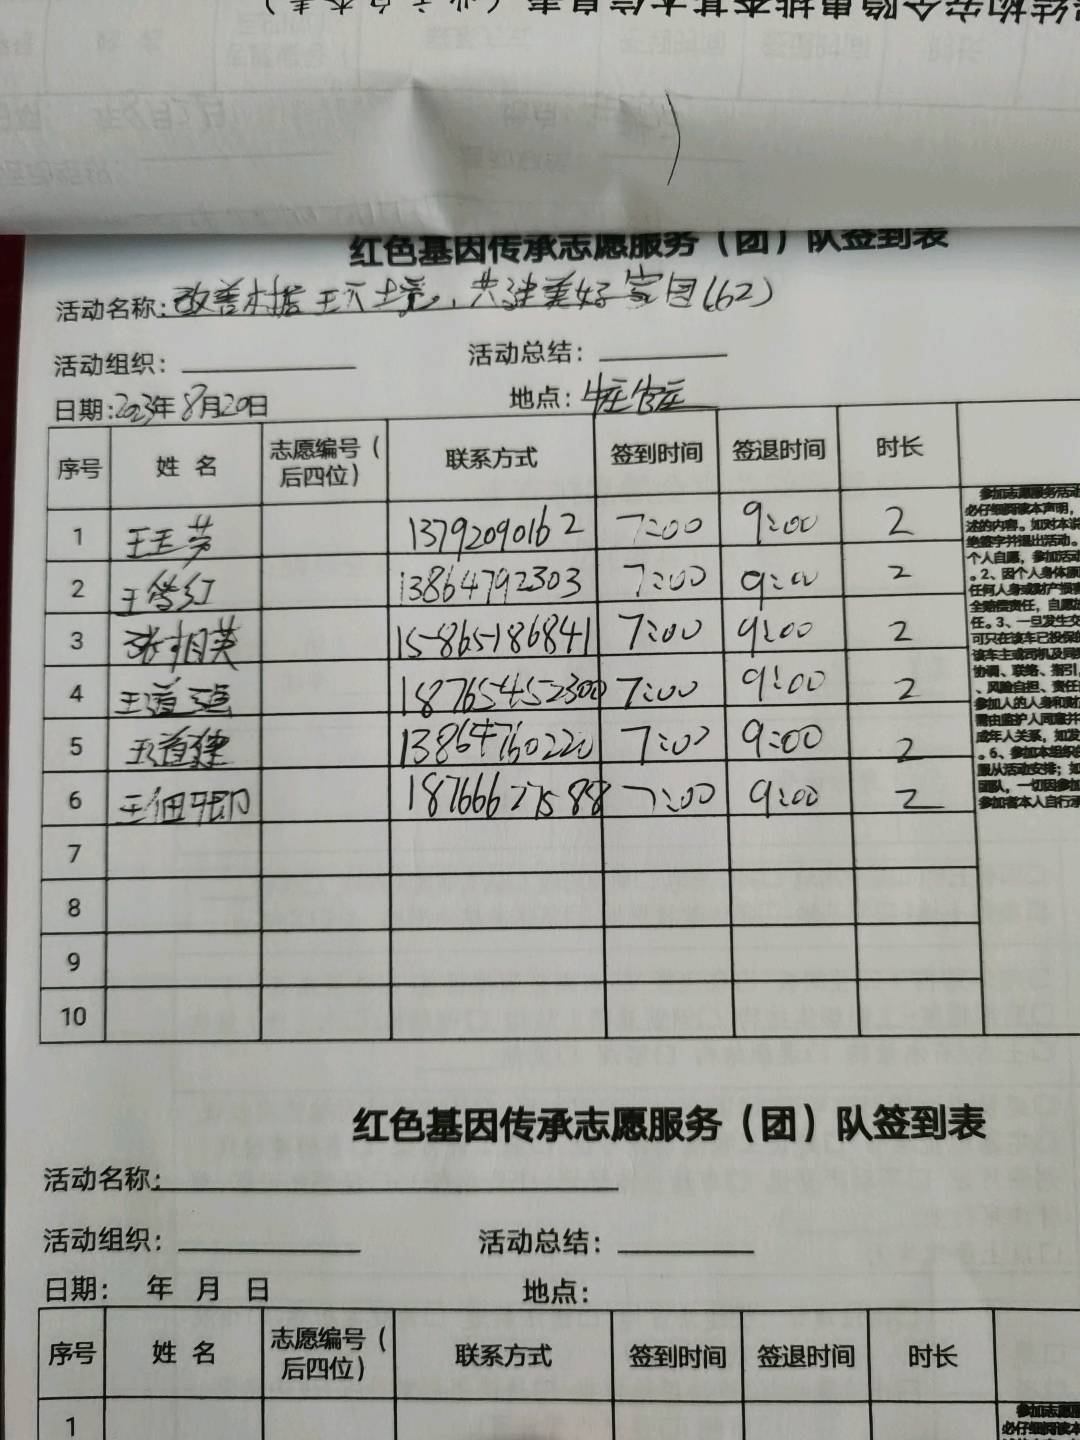 红色基因传承志愿服务（团）队签到表
活动名称：改善村居环境，共建美好家园（62）
活动组织：
活动总结：
日期：2023年8月20日
地点：
序号 姓 名 志愿编号（后四位） 联系方式 签到时间 签退时间 时长
1 王玉芳 13792090162 7:00 9:00 2
2 王 红 13864792303 7:00 9:00 2
3 张相英 15865186841 7:00 9:00 2
4 王道强 18765452300 7:00 9:00 2
5 王道健 13864760220 7:00 9:00 2
6 王佃 18766627588 7:00 9:00 2
7
8
9
10
参加志愿服务活动
必仔细阅读本声明，
述的内容。如对本说
绝签字并退出活动。
个人自愿，参加活动
。2、因个人身体原
任何人身或财产损害
全赔偿责任，自愿
任。3、一旦发生交
可只在该车已投保
该车主或司机及同
协调、联络、指引，
、风险自担、责任
参加人的人身和财
需由监护人同意并
成年人关系，如发
。6、参加本组织
服从活动安排；如
团队，一切因参加
参加者本人自行承
红色基因传承志愿服务（团）队签到表
活动名称：
活动组织：
活动总结：
日期： 年 月 日
地点：
序号 姓 名 志愿编号（后四位） 联系方式 签到时间 签退时间 时长
1
参加志愿
必仔细阅读本